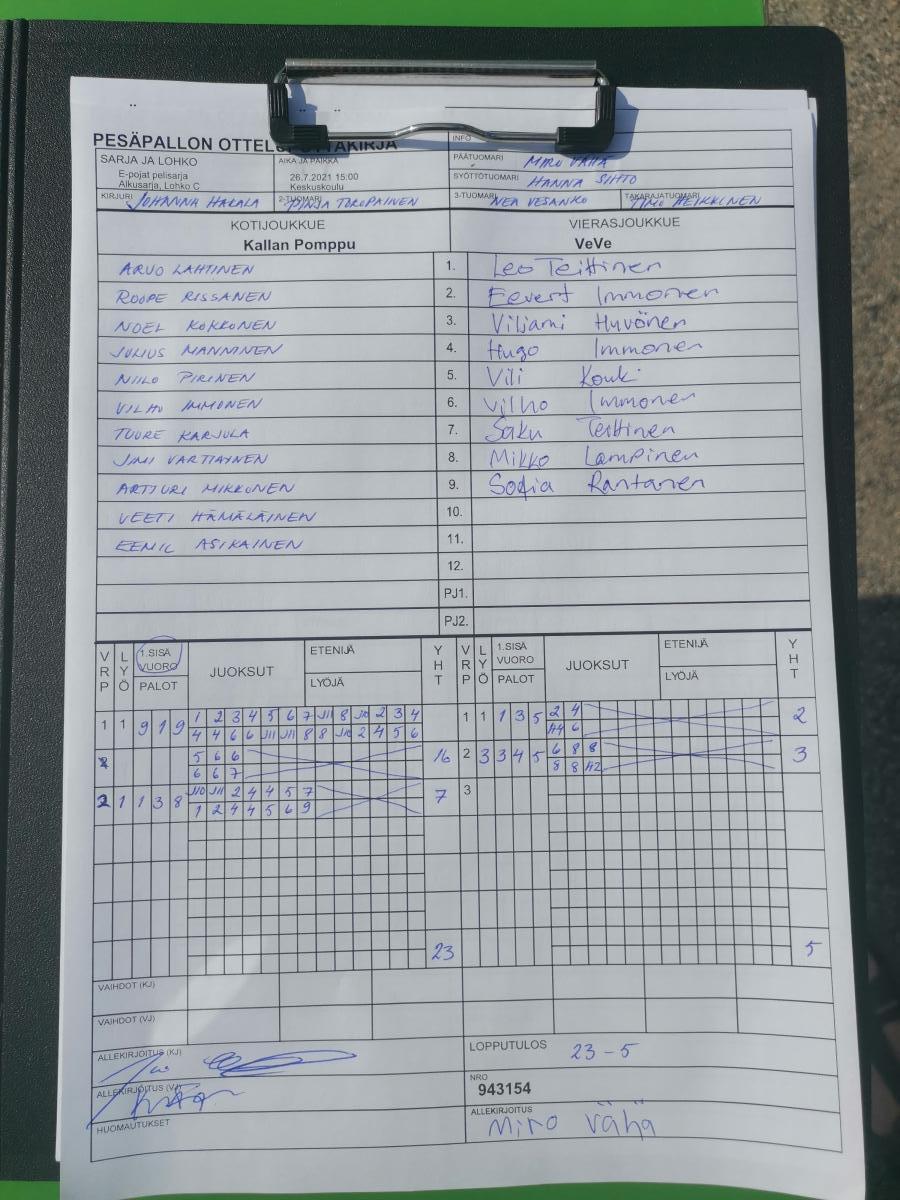 PESÄPALLON OTTELUPÖYTÄKIRJA
INFO
SARJA JA LOHKO
E-pojat pelisarja
Alkusarja, Lohko C
AIKA JA PAIKKA
26.7.2021 15:00
Keskuskoulu
PÄÄTUOMARI MIRO VÄHÄ
SYÖTTÖTUOMARI HANNA SIHTO
KIRJURI JOHANNA HAKALA 2-TUOMARI PINJA TOROPAINEN 3-TUOMARI NEA VESANKO TAKARAJATUOMARI TIMO HEIKKINEN
KOTIJOUKKUE VIERASJOUKKUE
Kallan Pomppu VeVe
ARVO LAHTINEN 1. Leo Teittinen
ROOPE RISSANEN 2. Eevert Immonen
NOEL KOKKONEN 3. Viljami Huvönen
JULIUS MANNINEN 4. Hugo Immonen
NIILO PIRINEN 5. Vili Kouki
VILHO IMMONEN 6. Vilho Immonen
TUURE KARJULA 7. Saku Teittinen
JIMI VARTIAINEN 8. Mikko Lampinen
ARTTURI MIKKONEN 9. Sofia Rantanen
VEETI HÄMÄLÄINEN 10.
EEMIL ASIKAINEN 11.
12.
PJ1.
PJ2.
VRP LYÖ 1.SISÄ VUORO PALOT JUOKSUT ETENIJÄ LYÖJÄ YHT VRP LYÖ 1.SISÄ VUORO PALOT JUOKSUT ETENIJÄ LYÖJÄ YHT
1 1 9 1 9 1 2 3 4 5 6 7 J11 8 J10 2 3 4 1 1 1 3 5 2 4 2
4 4 6 6 J11 J11 8 8 J10 2 4 5 6 A4 6
5 6 6 16 2 3 3 4 5 6 8 8 3
6 6 7 8 8 A2
2 1 1 3 8 J10 J11 2 4 4 5 7 7 3
1 2 4 4 5 6 9
23 5
VAIHDOT (KJ)
VAIHDOT (VJ)
ALLEKIRJOITUS (KJ)
LOPPUTULOS 23-5
ALLEKIRJOITUS (VJ)
NRO
943154
HUOMAUTUKSET
ALLEKIRJOITUS
Miro Vähä